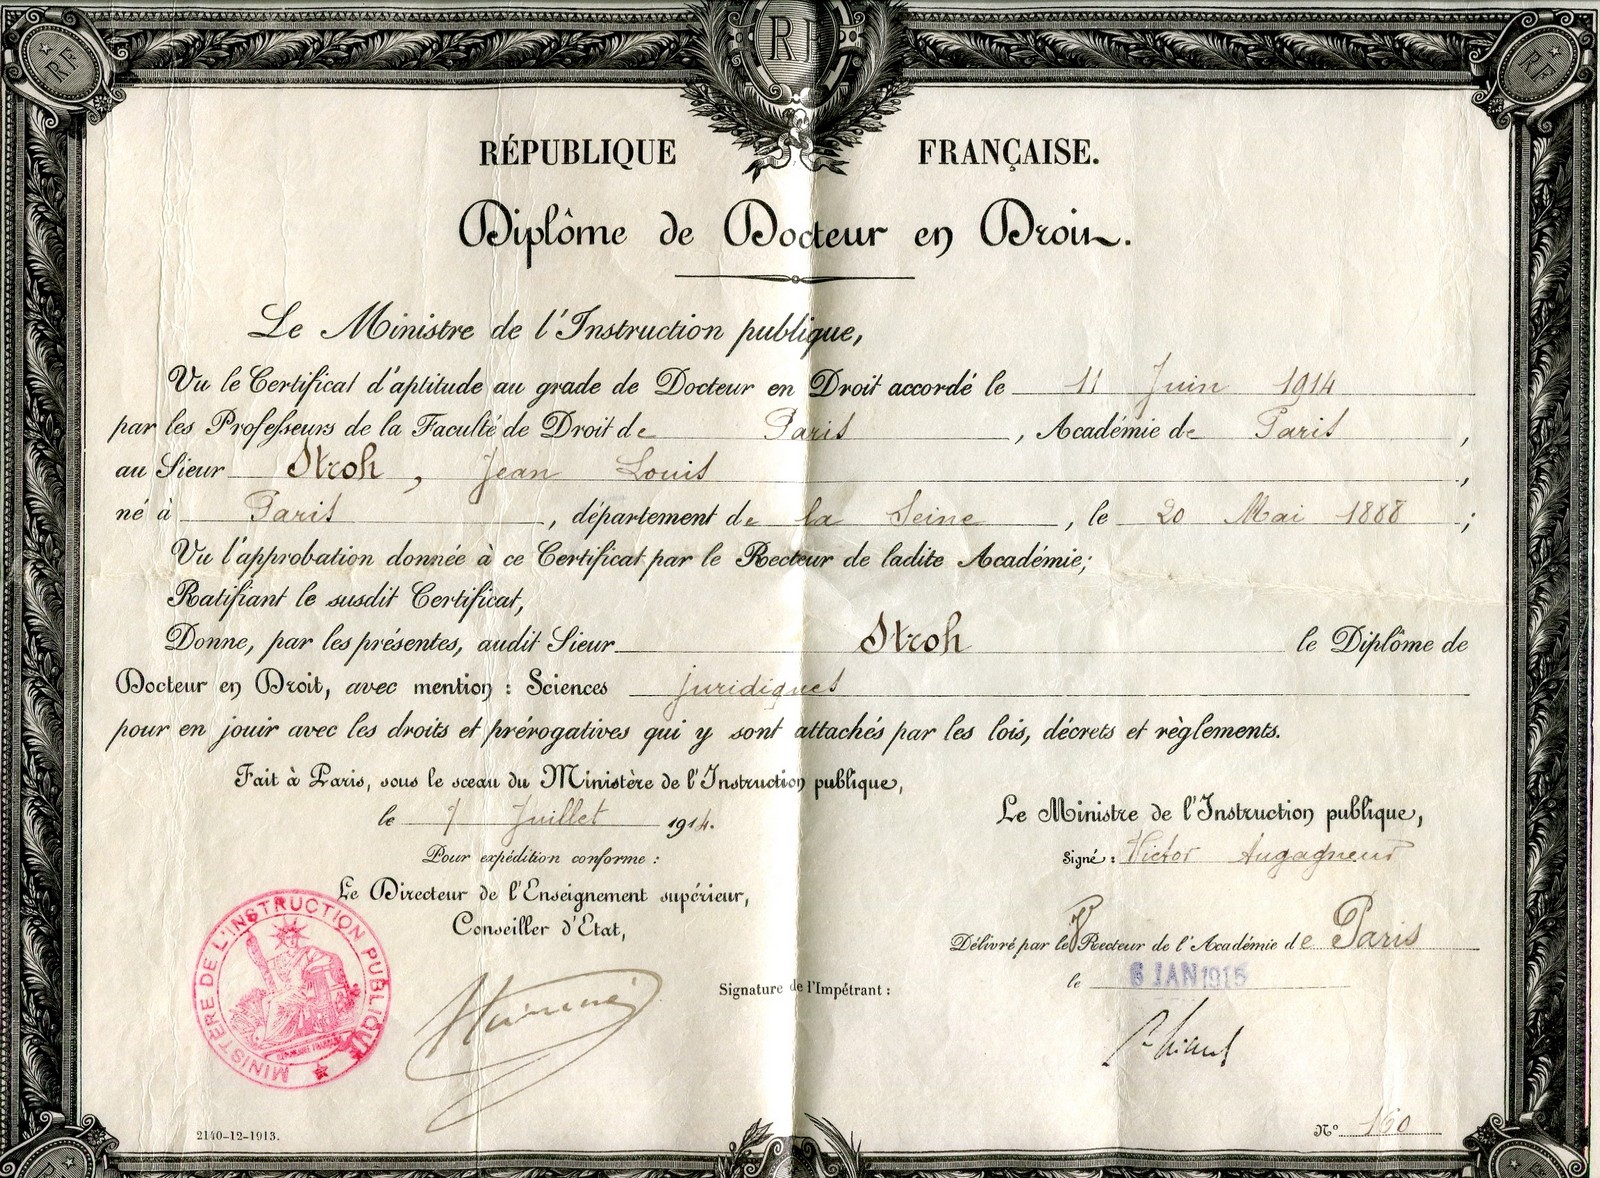 RF
RF
RF
RÉPUBLIQUE FRANÇAISE.
Diplôme de Docteur en Droit.
Le Ministre de l'Instruction publique,
Vu le Certificat d'aptitude au grade de Docteur en Droit accordé le 11 Juin 1914
par les Professeurs de la Faculté de Droit de Paris, Académie de Paris,
au Sieur Stroh, Jean Louis,
né à Paris, département de la Seine, le 20 Mai 1888;
Vu l'approbation donnée à ce Certificat par le Recteur de ladite Académie;
Ratifiant le susdit Certificat,
Donne, par les présentes, audit Sieur Stroh le Diplôme de
Docteur en Droit, avec mention : Sciences juridiques
pour en jouir avec les droits et prérogatives qui y sont attachés par les lois, décrets et règlements.
Fait à Paris, sous le sceau du Ministère de l'Instruction publique,
le 7 Juillet 1914.
Pour expédition conforme :
Le Directeur de l'Enseignement supérieur,
Conseiller d'Etat,
MINISTÈRE DE L'INSTRUCTION PUBLIQUE
Le Ministre de l'Instruction publique,
Signé : Victor Augagneur
Délivré par le V Recteur de l'Académie de Paris
le 6 JAN 1915
Signature de l'Impétrant :
2140-12-1913.
N° 160
RF